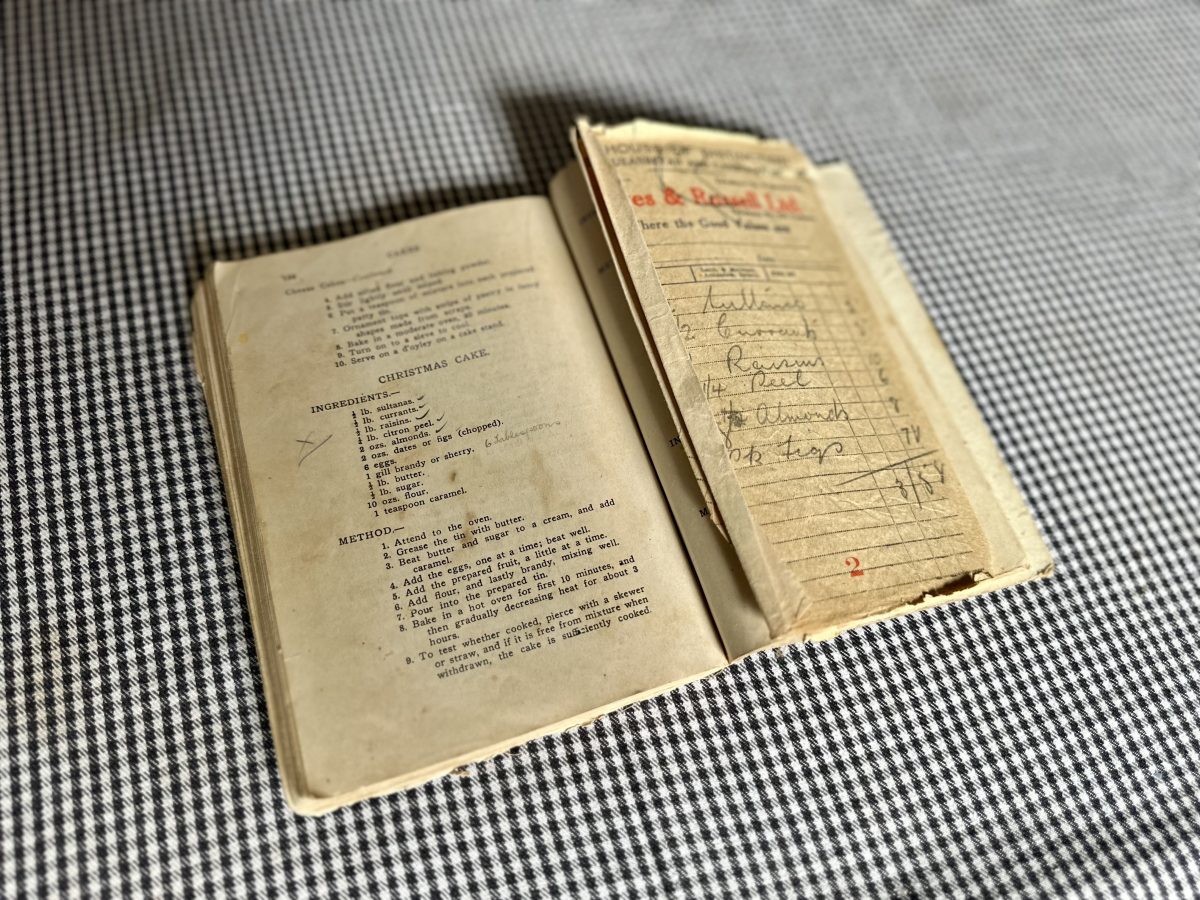 CAKES
Cheese Cakes—Continued.
4. Add sifted flour and baking powder.
5. Stir lightly until mixed.
6. Put a teaspoon of mixture into each prepared
patty tin.
7. Ornament tops with strips of pastry in fancy
shapes made from scraps.
8. Bake in a moderate oven, 20 minutes.
9. Turn on to a sieve to cool.
10. Serve on a d'oyley on a cake stand.
CHRISTMAS CAKE.
INGREDIENTS.—
½ lb. sultanas.
½ lb. currants.
½ lb. raisins.
¼ lb. citron peel.
2 ozs. almonds.
2 ozs. dates or figs (chopped).
6 eggs.
1 gill brandy or sherry. 6 tablespoons
½ lb. butter.
½ lb. sugar.
10 ozs. flour.
1 teaspoon caramel.
METHOD.—
1. Attend to the oven.
2. Grease the tin with butter.
3. Beat butter and sugar to a cream, and add
caramel.
4. Add the eggs, one at a time; beat well.
5. Add the prepared fruit, a little at a time.
6. Add flour, and lastly brandy, mixing well.
7. Pour into the prepared tin.
8. Bake in a hot oven for first 10 minutes, and
then gradually decreasing heat for about 3
hours.
9. To test whether cooked, pierce with a skewer
or straw, and if it is free from mixture when
withdrawn, the cake is sufficiently cooked.
HOUSE OF
es & Russell Ltd.
here the Good Values are
Sultanas
2 Currants
Raisins
1/4 Peel 6
Almonds
pk figs
2
IN
M